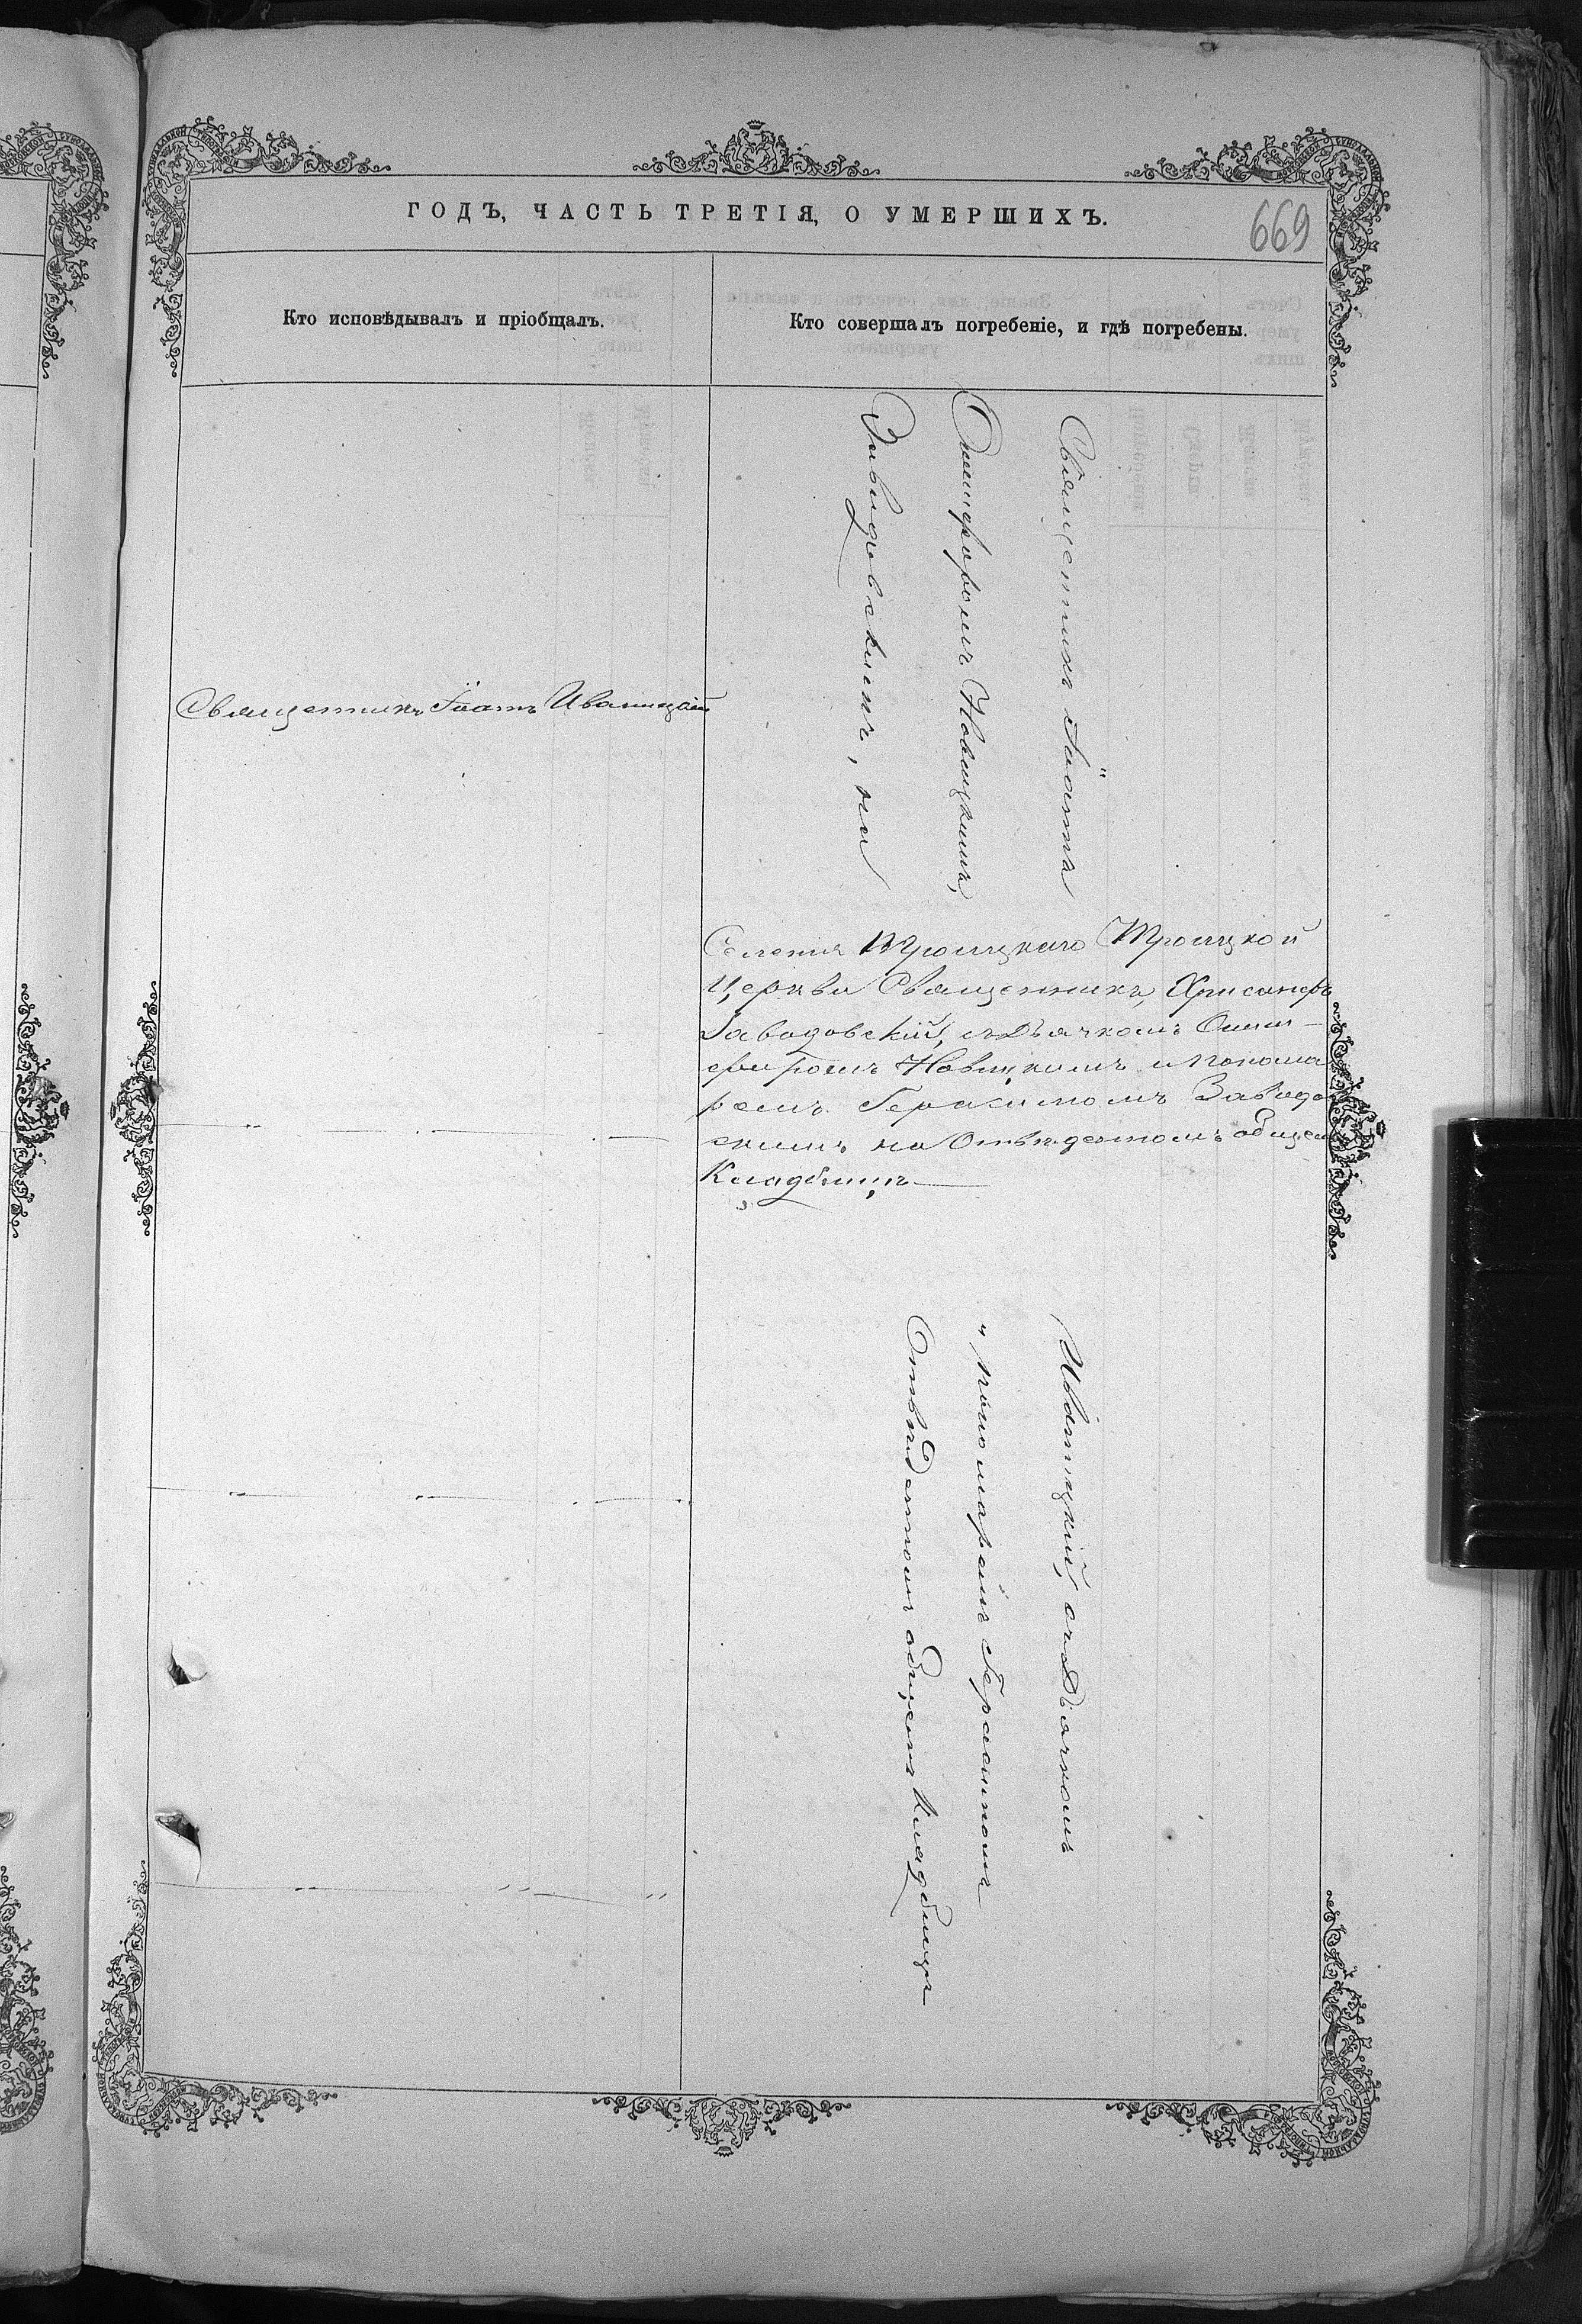 ГОДЪ, ЧАСТЬ ТРЕТІЯ, О УМЕРШИХЪ.
669
Кто исповѣдывалъ и пріобщалъ.
Кто совершалъ погребеніе, и гдѣ погребены.
Священникъ Іоаннъ Иваницкій
Священникъ Іоаннъ
Онисифоромъ Новицкимъ,
Заводовскимъ, на
Селенія Троицкаго Троицкой
Церкви Священникъ, Хрисанфъ
Заводовскій, съ Дьячкомъ Ониси-
форомъ Новицкимъ и понома
ремъ Герасимомъ Заводо
скимъ на Отвѣденномъ общемъ
Кладбищѣ
Иваницкій, съ Дьячкомъ
и пономаремъ Герасимомъ
Отвѣденномъ общемъ Кладбищѣ